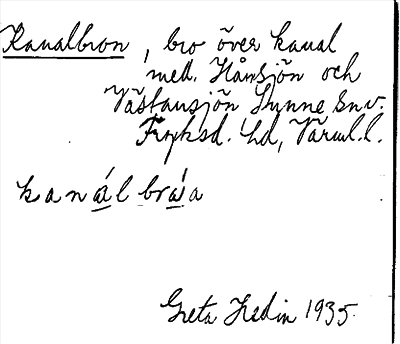 Kanalbron, bro över kanal
mell. Håmsjön och
Västansjön Sunne snv.
Fryksd. hd, Värml.l.
kanál bráa
Greta Hedin 1935.